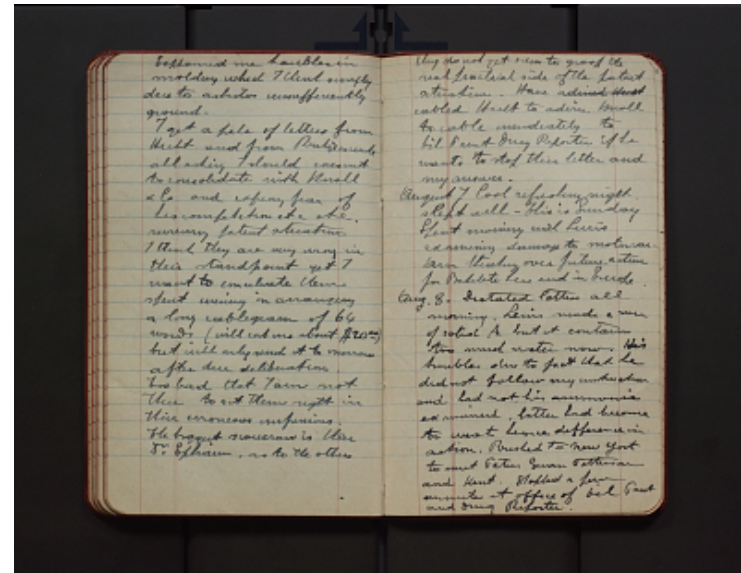 Explained me troubles in
molding which I think simply
due to asbestos insufficiently
ground.
I got a pile of letters from
Hecht and from
all asking I should consent
to consolidate with Knoll
& Co. and express fear of
his competition etc. etc.
patent situation
I think they are very wrong in
their standpoint yet I
want to conciliate them
spent evening in arranging
a long cablegram of 64
words (will cost me about $20.00)
but will only send it to morrow
after due deliberation
Too bad that I am not
there to set them right in
their erroneous
The biggest is there
Dr. Ephraim, as to the others
they do not yet seem to grasp the
real practical side of the patent
situation. Have
cabled Hecht to advise Knoll
to cable immediately to
Oil Paint Drug Reporter if he
wants to stop their letter and
my answer.
August 7 Cool refreshing night
slept well - this is Sunday
Spent morning with
examining damage to motor
thinking over future action
for Bakelite here and in Europe.
Aug. 8. Dictated letters all
morning. made a run
of solid A but it contains
too much water now. His
troubles due to fact that he
did not follow my instruction
and had not his ammonia
examined, latter had become
to weak hence difference in
action. Rushed to New York
to meet Peter Swan Patterson
and Kent. Stopped a few
minutes at office of Oil Paint
and Drug Reporter.